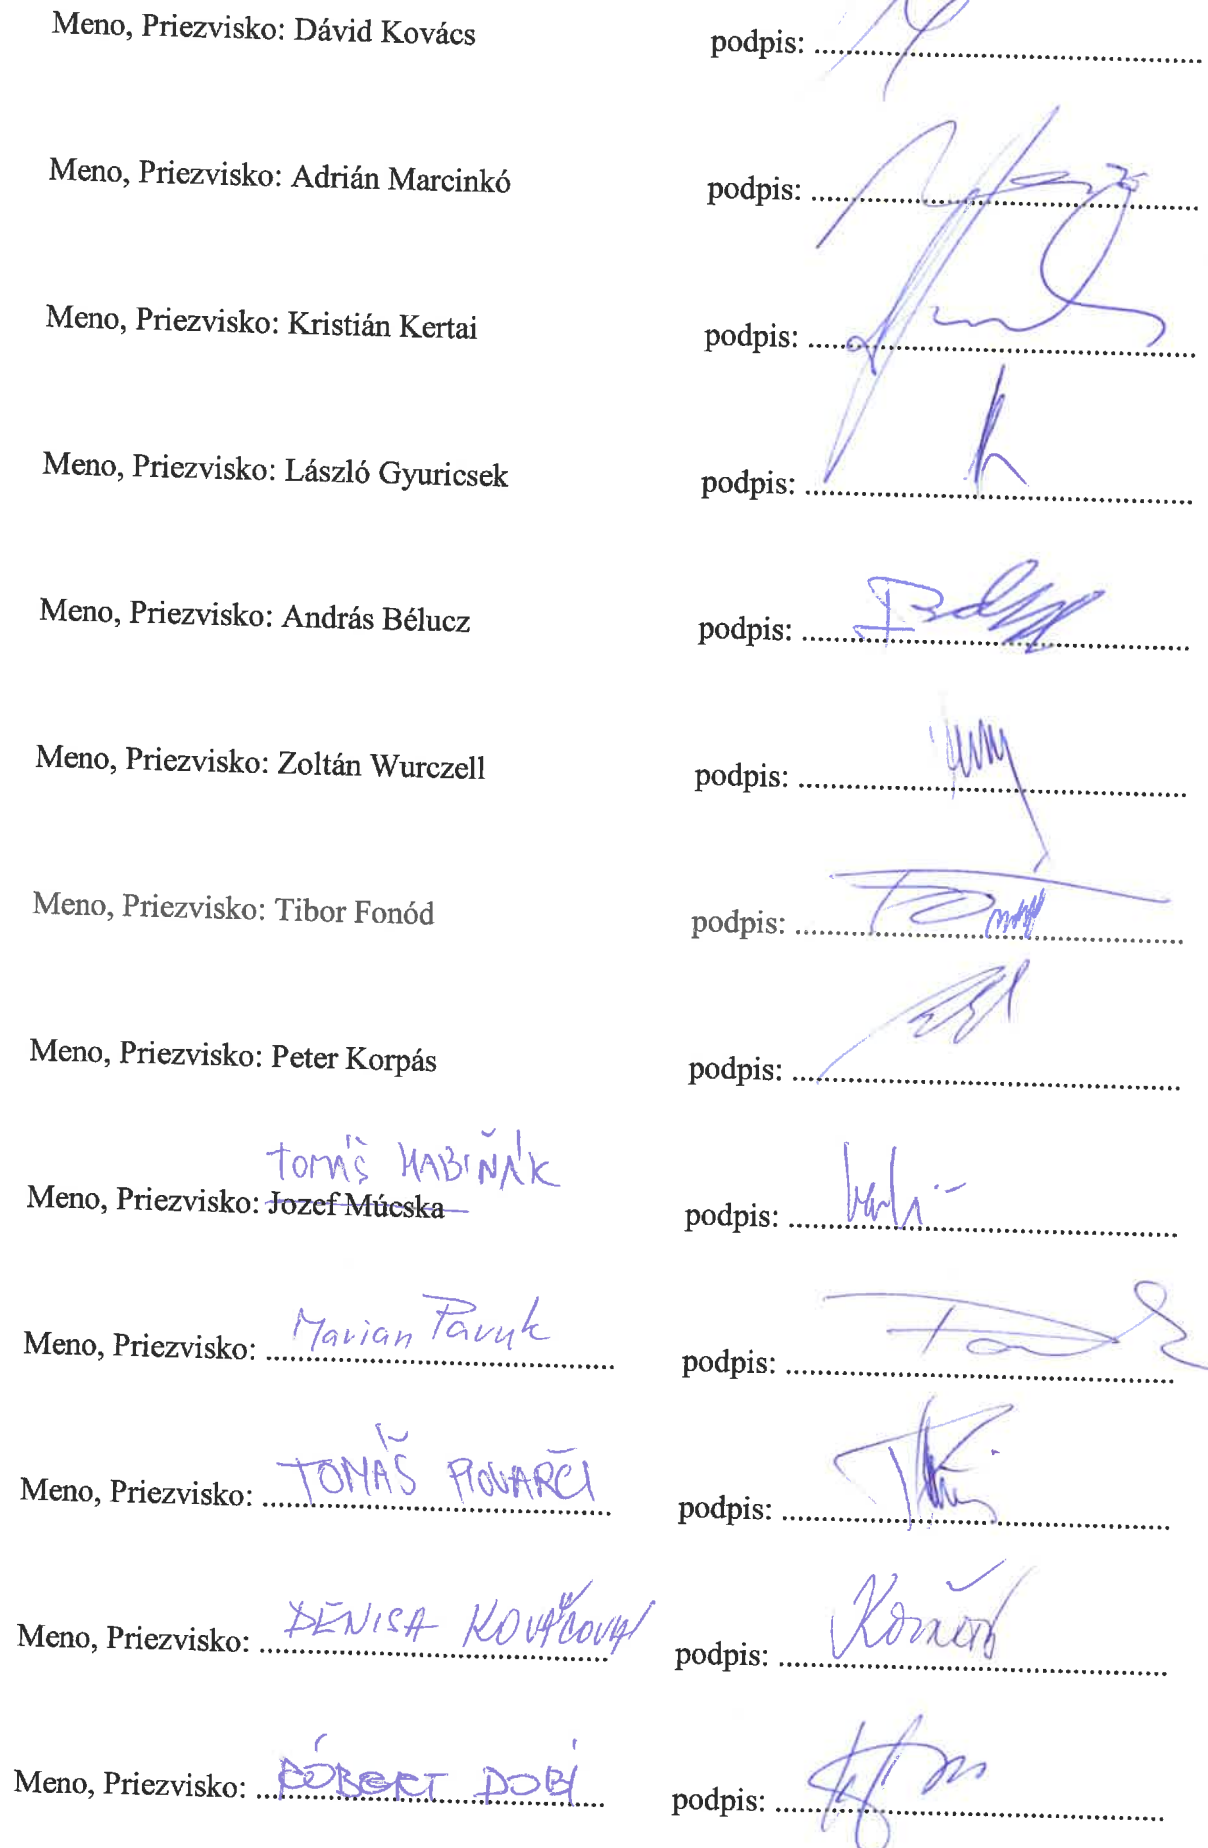 Meno, Priezvisko: Dávid Kovács podpis:
Meno, Priezvisko: Adrián Marcinkó podpis:
Meno, Priezvisko: Kristián Kertai podpis:
Meno, Priezvisko: László Gyuricsek podpis:
Meno, Priezvisko: András Bélucz podpis:
Meno, Priezvisko: Zoltán Wurczell podpis:
Meno, Priezvisko: Tibor Fonód podpis:
Meno, Priezvisko: Peter Korpás podpis:
Tomáš HABIŇÁK
Meno, Priezvisko: Jozef Múcska podpis:
Meno, Priezvisko: Marian Pavuk podpis:
Meno, Priezvisko: TOMÁŠ PIOVARČI podpis:
Meno, Priezvisko: DENISA KOVÁČOVÁ podpis:
Meno, Priezvisko: RÓBERT DOBI podpis: